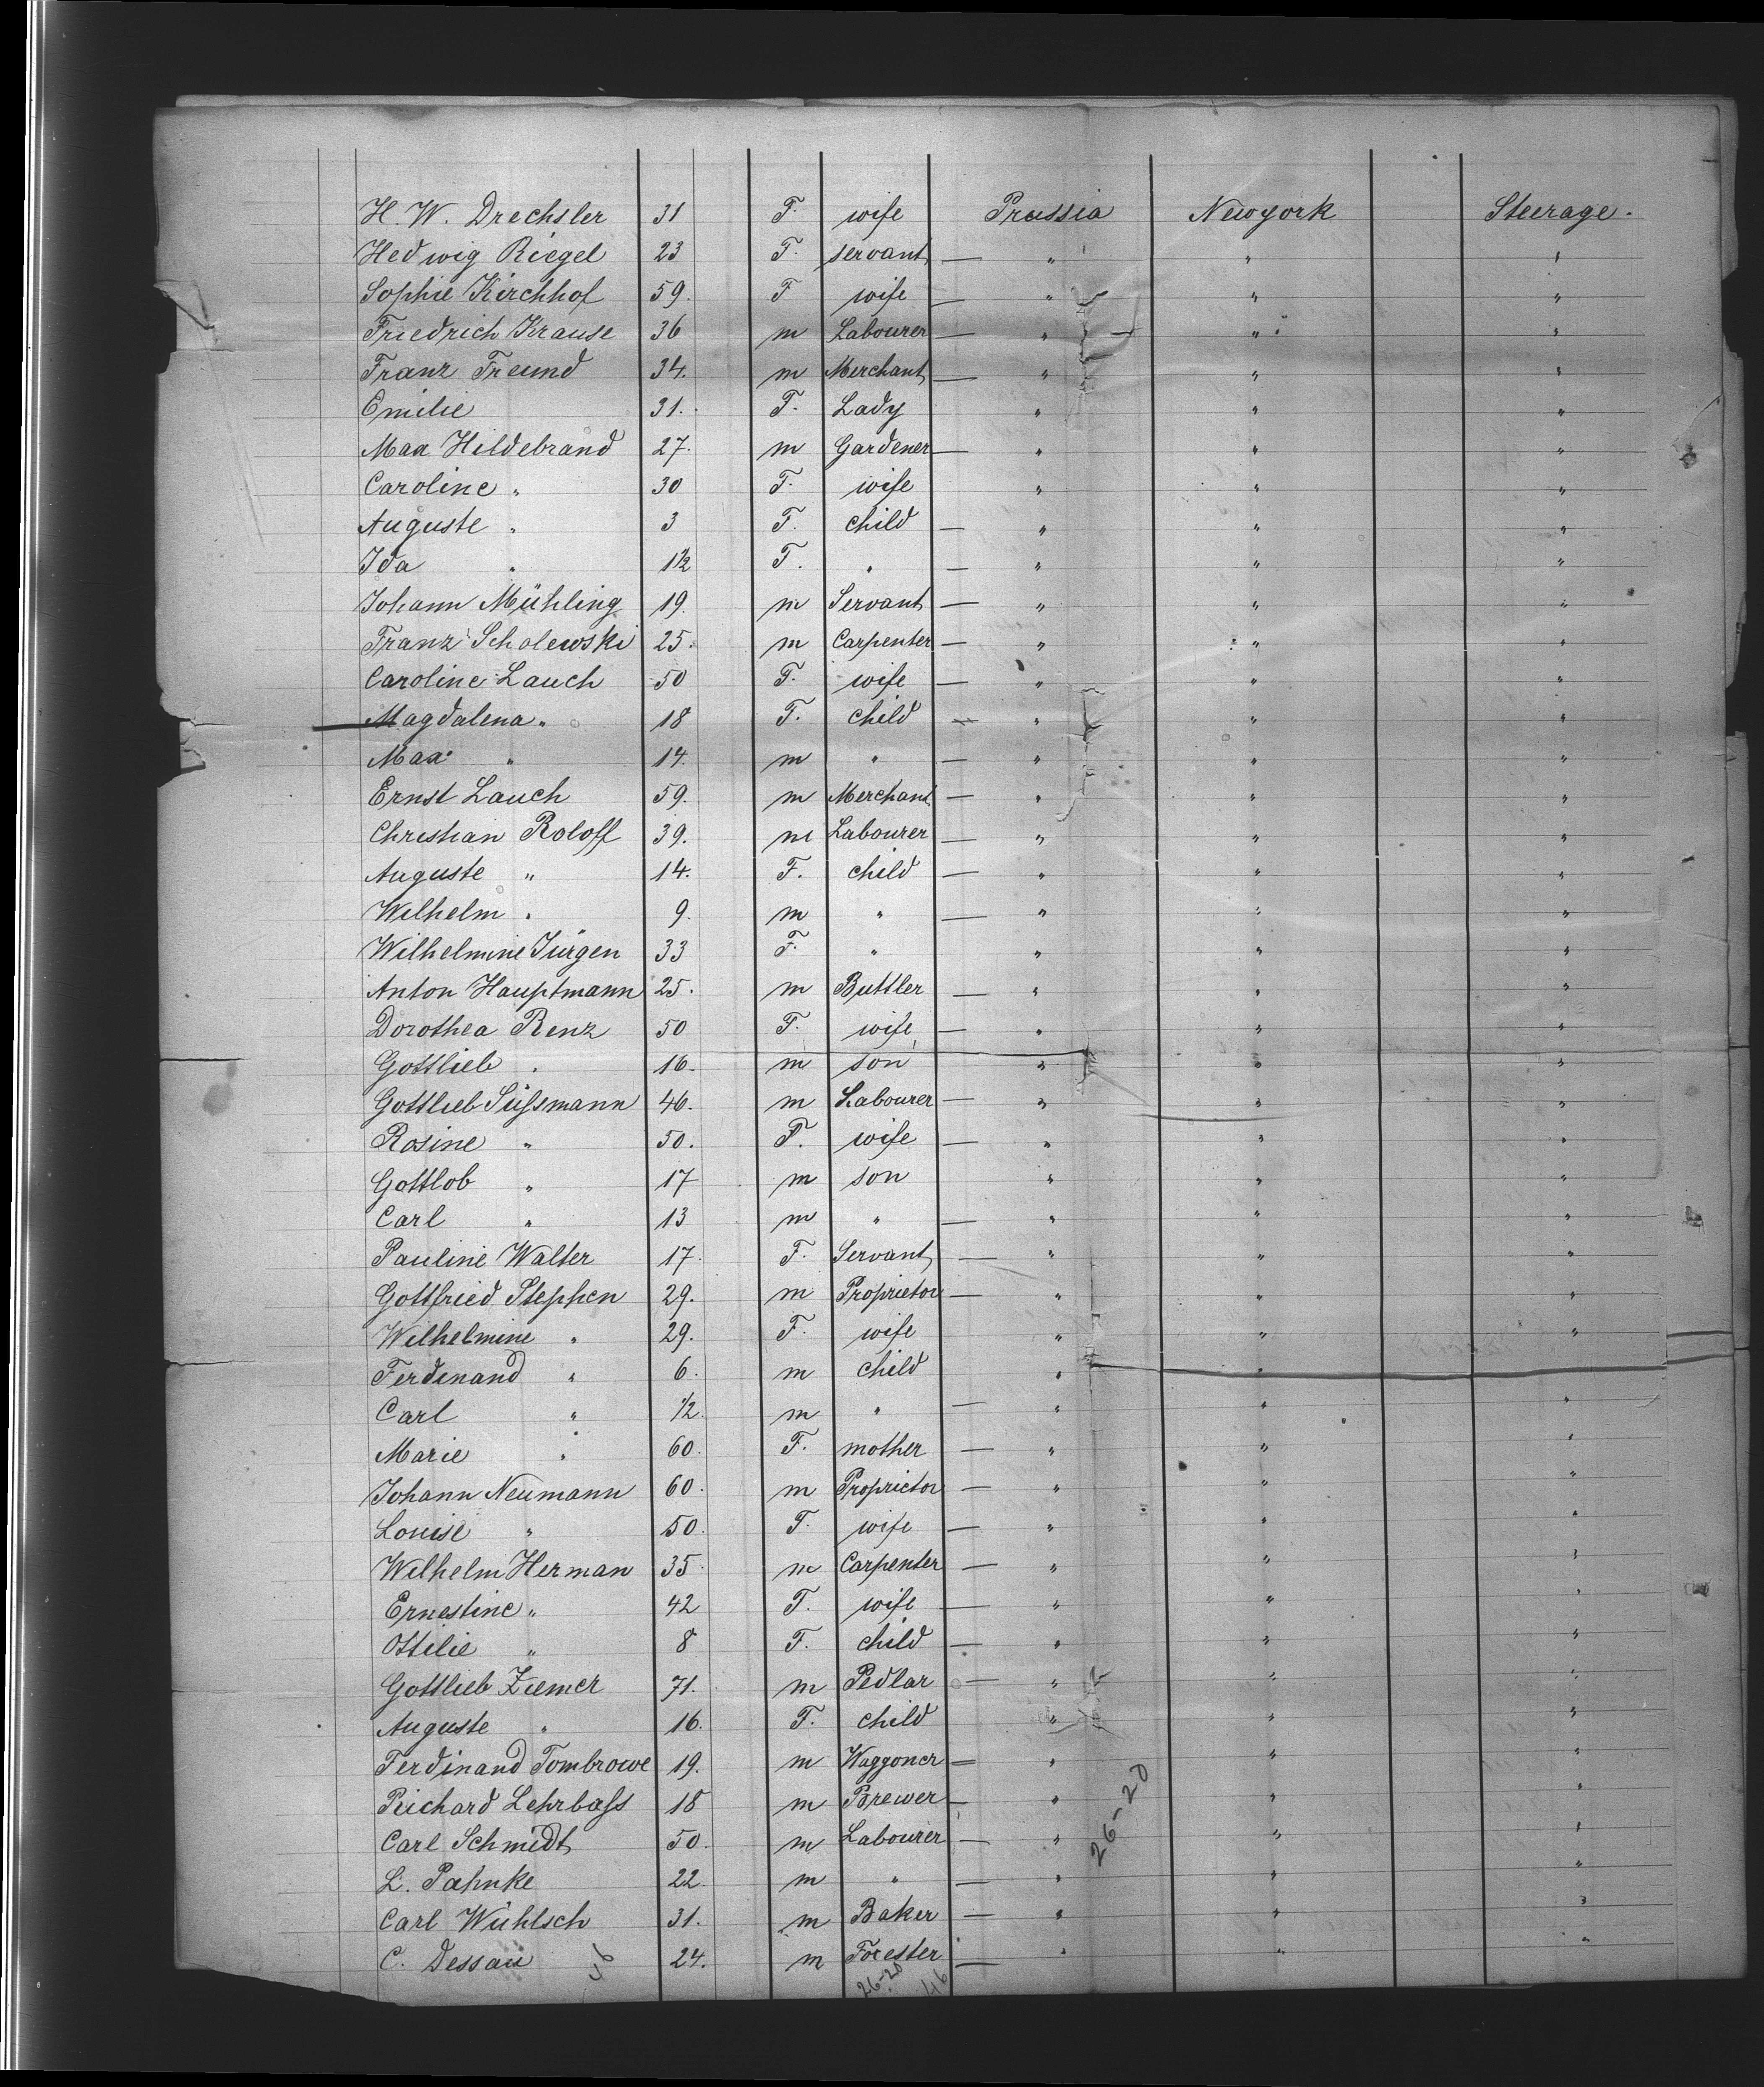 H. W. Drechsler 31 F. wife Prussia Newyork Steerage.
Hedwig Riegel 23 F. servant — " " "
Sophie Kirchhof 59. F wife — " " "
Friedrich Krause 36 m Labourer — " " "
Franz Freund 34. m Merchant — " " "
Emilie 31. F. Lady " " "
Max Hildebrand 27. m Gardener — " " "
Caroline " 30 F. wife " " "
Auguste " 3 F. child — " " "
Ida " 1½ F. " — " " "
Johann Mühling 19. m Servant — " " "
Franz Scholewski 25. m Carpenter — " " "
Caroline Lauch 50 F. wife — " " "
Magdalena " 18 F. child — " " "
Max " 14. m " — " " "
Ernst Lauch 59. m Merchant — " " "
Christian Roloff 39. m Labourer — " " "
Auguste " 14. F. child — " " "
Wilhelm " 9. m " — " " "
Wilhelmine Jürgen 33 F. " " " "
Anton Hauptmann 25. m Buttler — " " "
Dorothea Renz 50 F. wife — " " "
Gottlieb " 16. m son " " "
Gottlieb Süssmann 46. m Labourer — " " "
Rosine " 50. F. wife — " " "
Gottlob " 17 m son " " "
Carl " 13 m " — " " "
Pauline Walter 17. F. Servant — " " "
Gottfried Stephen 29. m Proprietor — " " "
Wilhelmine " 29. F. wife " " "
Ferdinand " 6. m child " " "
Carl " ½. m " — " " "
Marie " 60. F. mother — " " "
Johann Neumann 60. m Proprietor — " " "
Louise " 50. F. wife — " " "
Wilhelm Herman 35. m Carpenter — " " "
Ernestine " 42 F. wife — " " "
Ottilie " 8 F. child — " " "
Gottlieb Ziemer 71. m Pedlar — " " "
Auguste " 16. F. child " " "
Ferdinand Tombrowe 19. m Waggoner — " " "
Richard Lehrbass 18 m Brewer — " " "
Carl Schmidt 50. m Labourer — " " "
L. Pahnke 22. m " — " " "
Carl Wühlsch 31. m Baker — " " "
C. Dessau 24. m Forester — " " "
26-20
46 26-20 46